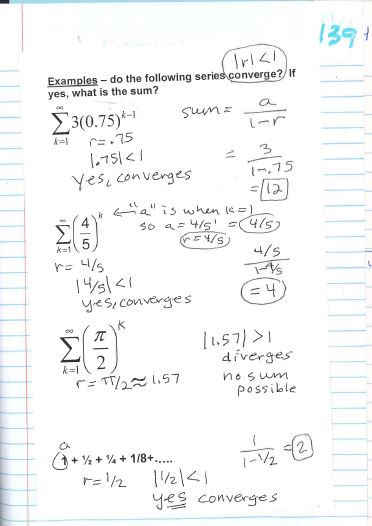 139
|r| < 1
Examples – do the following series converge? If
yes, what is the sum?
∞ ∑ k=1 3(0.75)^(k-1)
sum = a / (1-r)
r = .75
|.75| < 1
= 3 / (1-.75)
Yes, converges
= 12
∞ ∑ k=1 (4/5)^k
← "a" is when k=1
so a = 4/5¹ = 4/5
r = 4/5
r = 4/5
4/5 / (1-4/5)
|4/5| < 1
= 4
yes, converges
∞ ∑ k=1 (π/2)^k
|1.57| > 1
diverges
r = π/2 ≈ 1.57
no sum
possible
a
1 + ½ + ¼ + 1/8+.....
1 / (1-1/2) = 2
r = 1/2
|1/2| < 1
yes converges